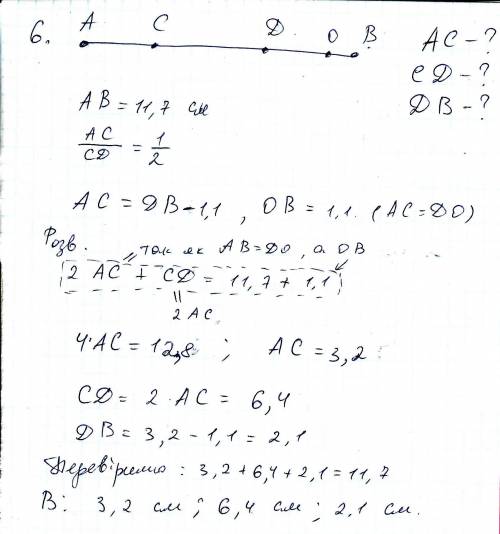 6. A C D O B AC - ?
CD - ?
DB - ?
AB = 11,7 см
AC/CD = 1/2
AC = DB - 1,1 , OB = 1,1. (AC = DO)
Розв. так як AB = DO, а OB
2 AC + CD = 11,7 + 1,1
2 AC
4·AC = 12,8 ; AC = 3,2
CD = 2·AC = 6,4
DB = 3,2 - 1,1 = 2,1
Перевіримо : 3,2 + 6,4 + 2,1 = 11,7
В: 3,2 см ; 6,4 см ; 2,1 см.